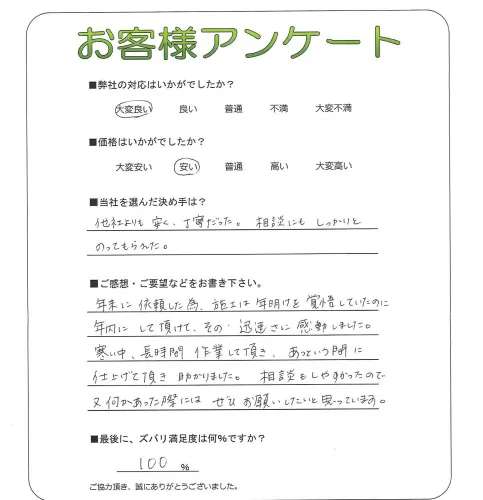 お客様アンケート
■弊社の対応はいかがでしたか？
大変良い 良い 普通 不満 大変不満
■価格はいかがでしたか？
大変安い 安い 普通 高い 大変高い
■当社を選んだ決め手は？
他社よりも 安く、丁寧だった。 相談にも しっかりと
のってもらえた。
■ご感想・ご要望などをお書き下さい。
年末に 依頼した為、施工は 年明けを 覚悟していたのに
年内に して頂けて、その 迅速さに 感動しました。
寒い中、長時間 作業して頂き、あっという間に
仕上げて頂き 助かりました。 相談もしやすかったので
又何かあった際には ぜひ お願いしたいと思っています。
■最後に、ズバリ満足度は何%ですか？
100 %
ご協力頂き、誠にありがとうございました。